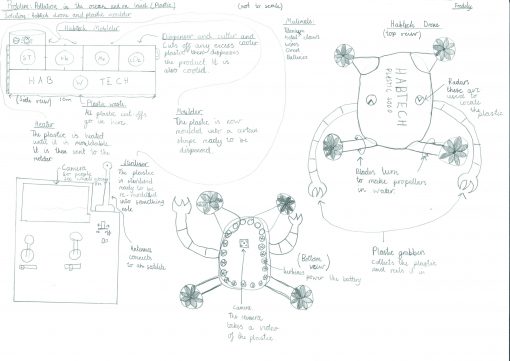 Problem: Pollution in the ocean and on land (Plastic)
Solution: habtech drone and plastic moulder
(not to scale)
Habtech Moulder
ST
HAB W TECH
(side view) 10m
Dispenser and cutter and cooler
Cuts off any excess
plastic then dispenses
the product. It is
also cooled.
Plastic waste
All plastic cut offs
go in here
Moulder
The plastic is now
moulded into a certain
shape ready to be
dispensed
Heater
The plastic is heated
until it is mouldable.
It is then sent to the
molder
Steriliser
The plastic
is sterilised
ready to be
re-moulded
into something
safe
Camera
for people
to
Antenna
connects
to a satellite
Materials:
Metal claws
Wires
Batteries
Habtech Drone
(top view)
HABTECH
PLASTIC
Radars
these are
used to
locate the
plastic
Blades turn
to make propellers
in water.
Plastic grabbers
collects the plastic
and reels it in
(Bottom
view)
turbines
power the battery
Camera
The camera
takes a video
of the plastic